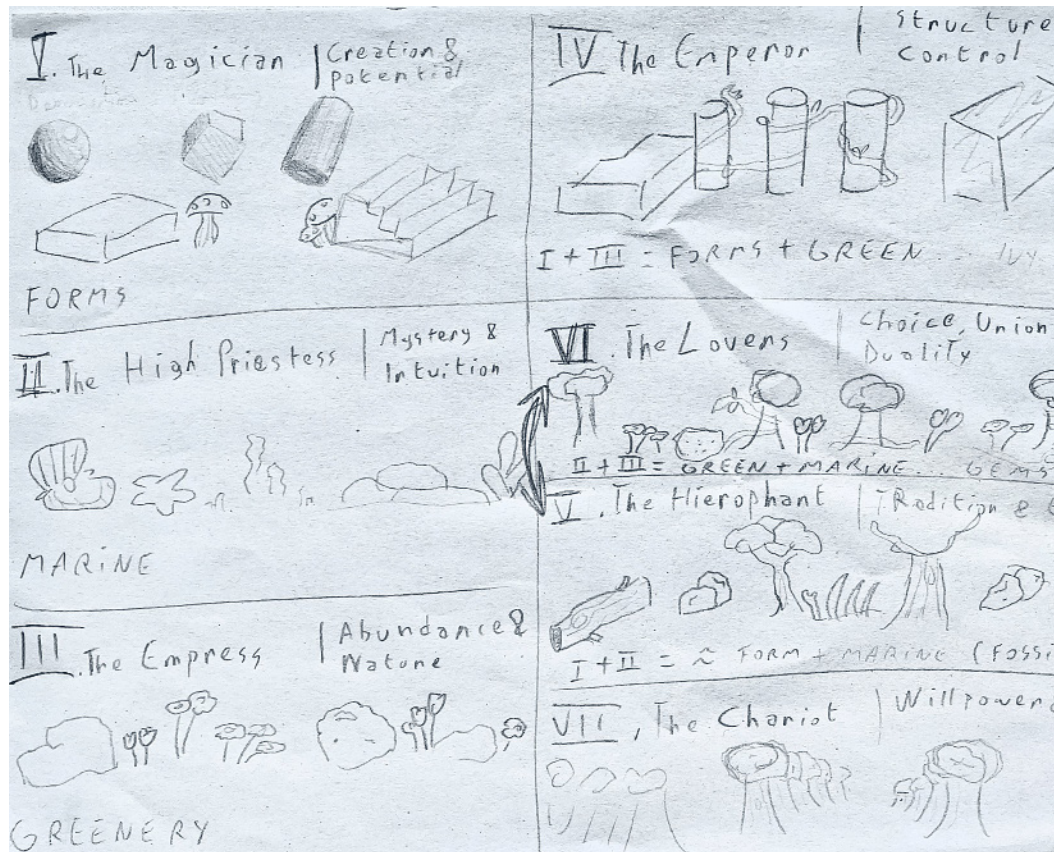 V. The Magician
Creation &
potential
FORMS
II. The High Priestess
Mystery &
Intuition
MARINE
III. The Empress
Abundance &
Nature
GREENERY
IV The Emperor
Structure
Control
I + III = FORMS + GREEN... IVY
VI. The Lovers
Choice, Union
Duality
II + III = GREEN + MARINE... GEMS
V. The Hierophant
Tradition &
I + II = ~ FORM + MARINE (FOSSI
VII, The Chariot
Willpower